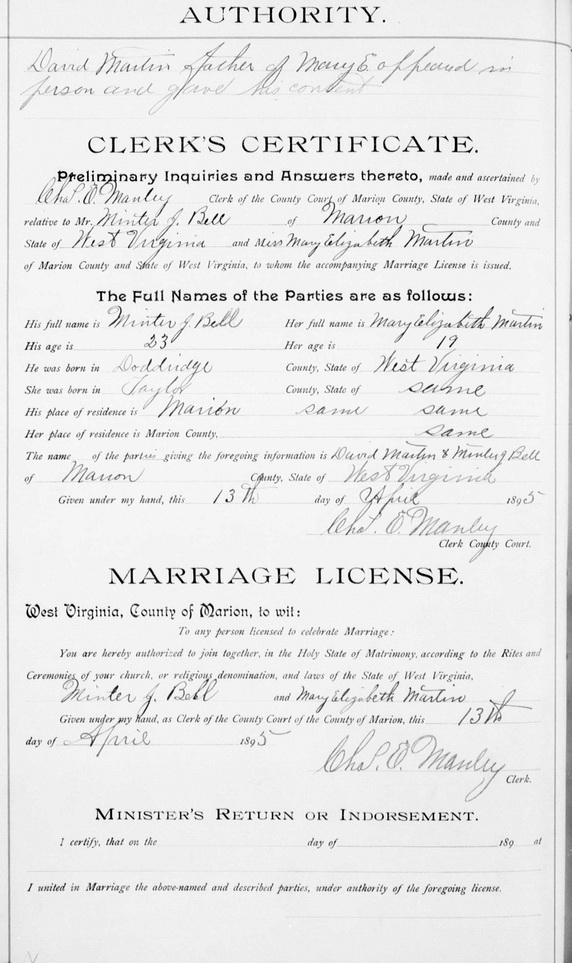 AUTHORITY.
David Martin father of Mary E appeared in
person and gave his consent
CLERK'S CERTIFICATE.
Preliminary Inquiries and Answers thereto, made and ascertained by
Chas. E. Manley Clerk of the County Court of Marion County, State of West Virginia,
relative to Mr. Minter J. Bell of Marion County and
State of West Virginia and Miss Mary Elizabeth Martin
of Marion County and State of West Virginia, to whom the accompanying Marriage License is issued.
The Full Names of the Parties are as follows:
His full name is Minter J. Bell Her full name is Mary Elizabeth Martin
His age is 23 Her age is 19
He was born in Doddridge County, State of West Virginia
She was born in Taylor County, State of same
His place of residence is Marion same same
Her place of residence is Marion County, same
The name of the parties giving the foregoing information is David Martin & Minter J Bell
of Marion County, State of West Virginia
Given under my hand, this 13th day of April 1895
Chas. E. Manley
Clerk County Court.
MARRIAGE LICENSE.
West Virginia, County of Marion, to wit:
To any person licensed to celebrate Marriage:
You are hereby authorized to join together, in the Holy State of Matrimony, according to the Rites and
Ceremonies of your church, or religious denomination, and laws of the State of West Virginia,
Minter J. Bell and Mary Elizabeth Martin
Given under my hand, as Clerk of the County Court of the County of Marion, this 13th
day of April 1895
Chas. E. Manley
Clerk.
MINISTER'S RETURN OR INDORSEMENT.
I certify, that on the day of 189 at
I united in Marriage the above-named and described parties, under authority of the foregoing license.